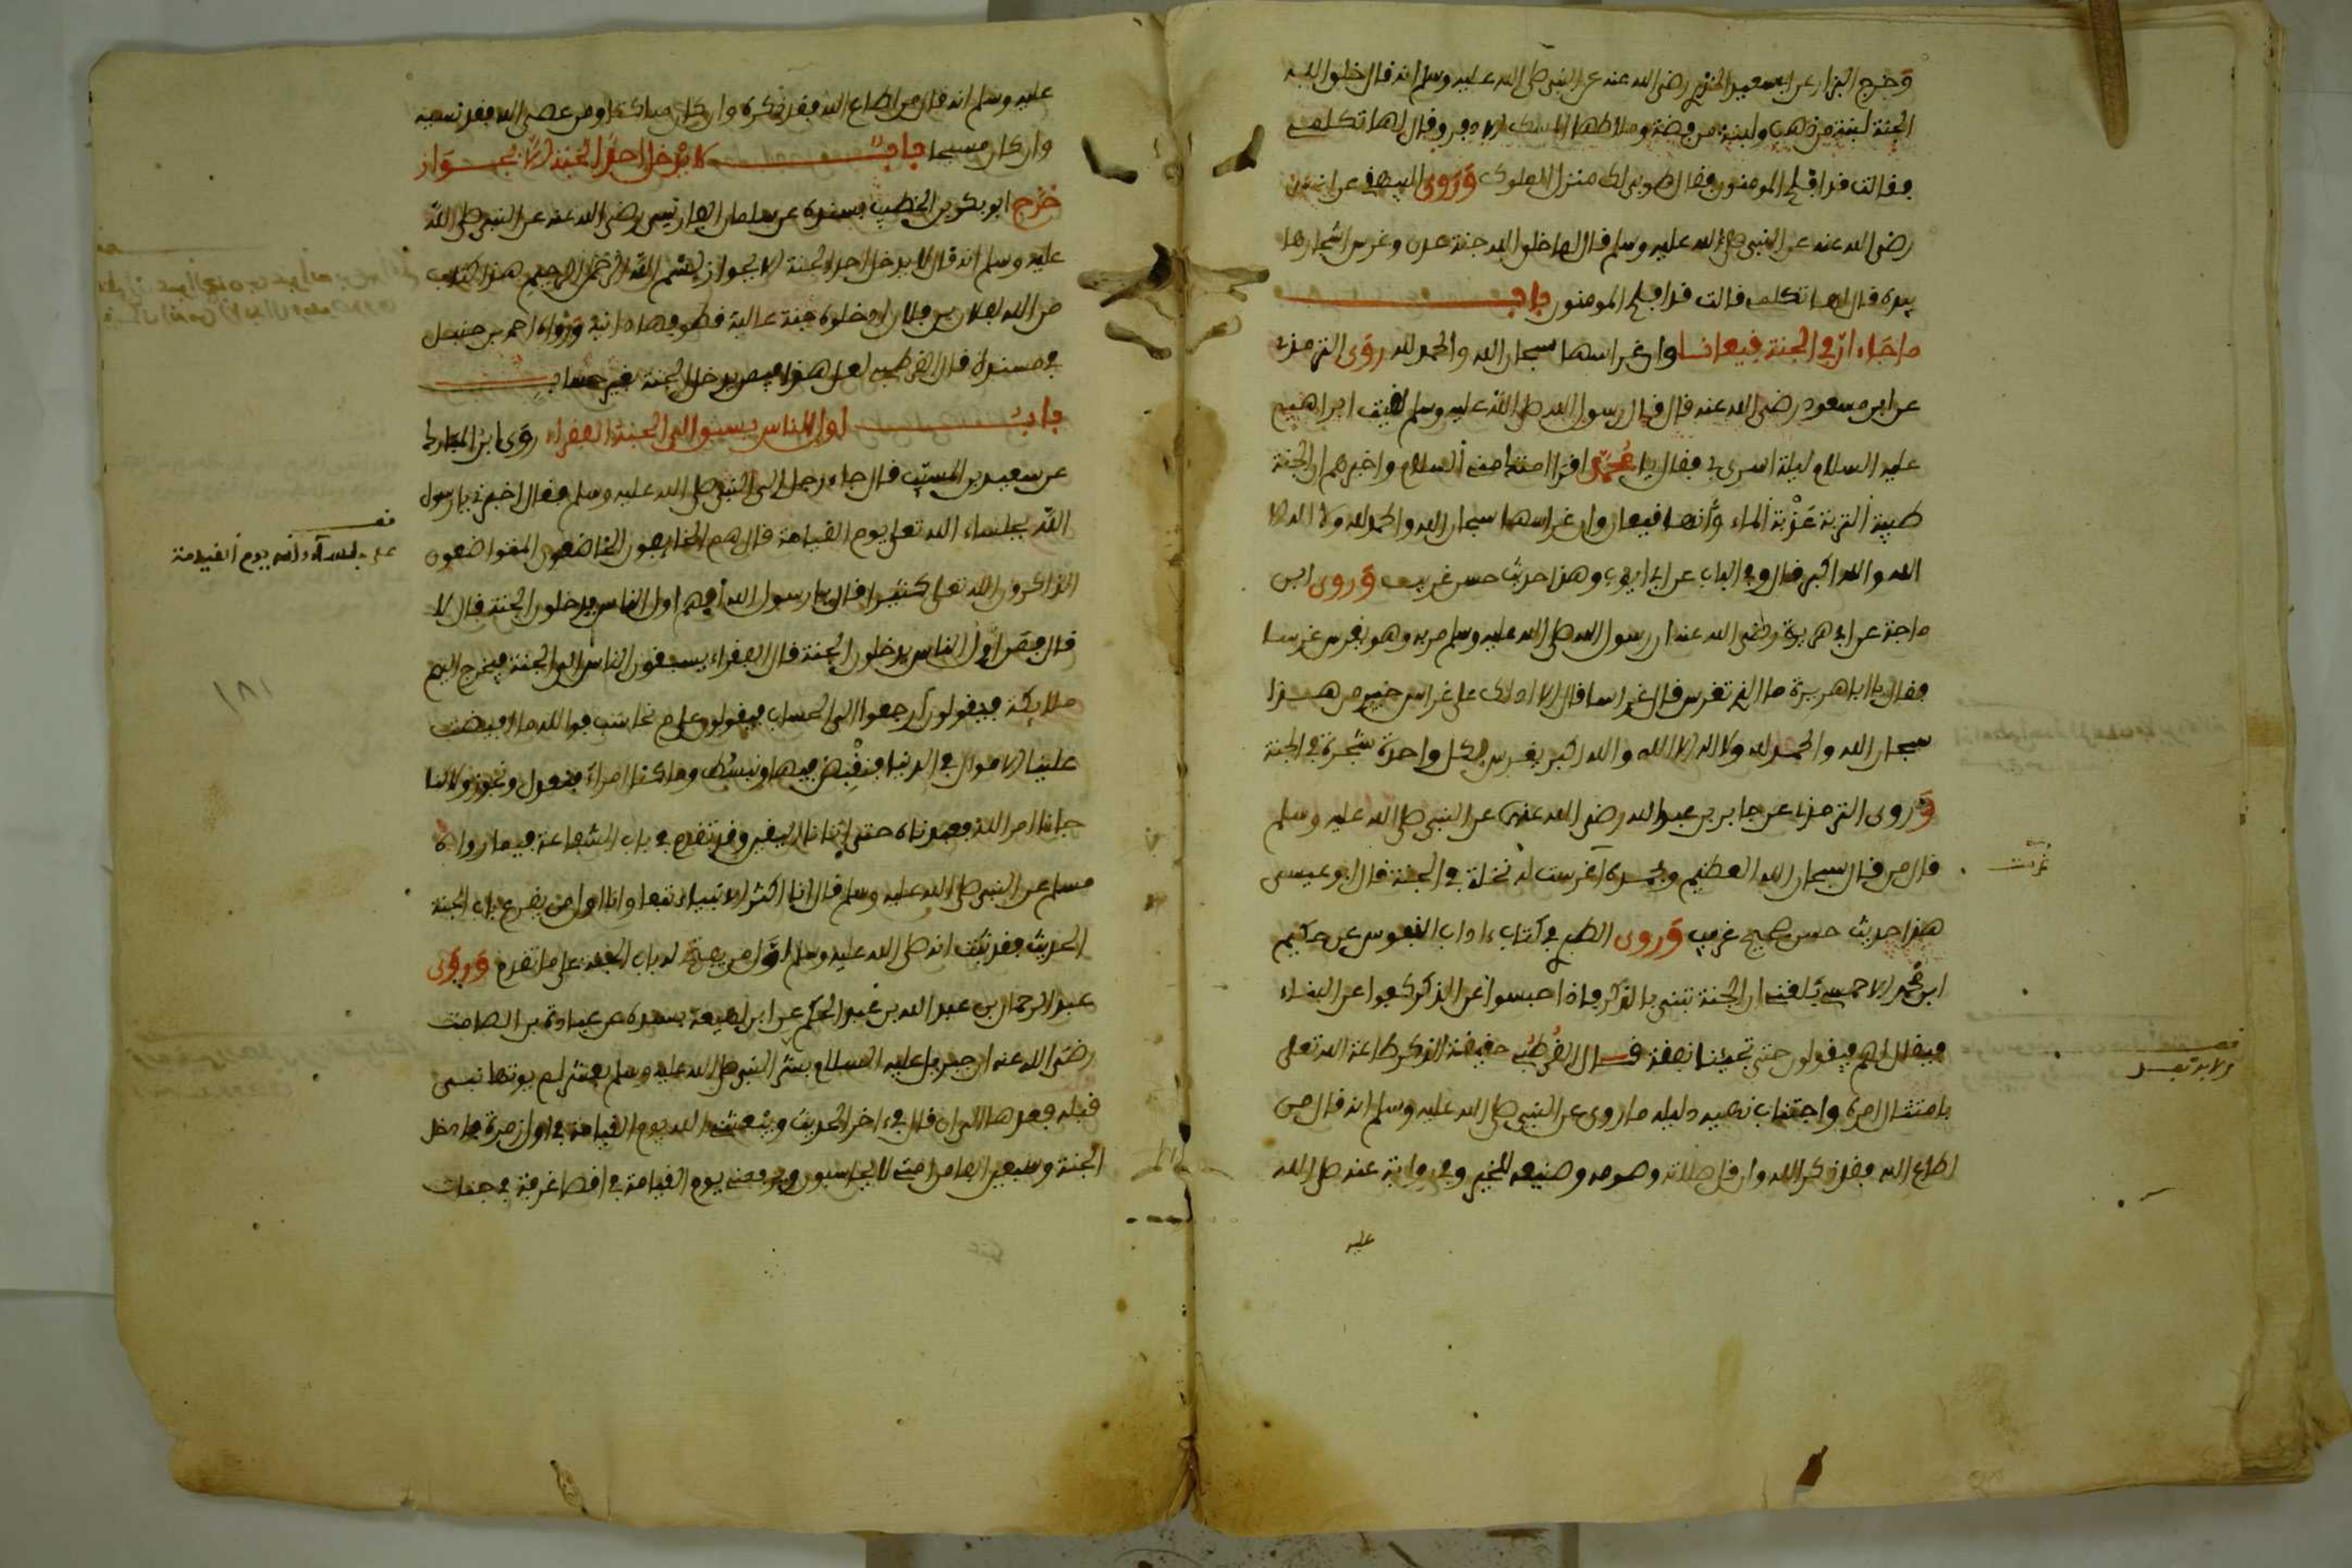 وخرج البزار عن ابي سعيد الخدري رضي الله عنه عن النبي صلى الله عليه وسلم انه قال خلق الله
الجنة لبنة من ذهب ولبنة من فضة وملاطها المسك الاذفر وقال لها تكلمي
فقالت قد افلح المومنون فقال طوبى لك منزل الملوك وروى البيهقي عن انس
رضي الله عنه عن النبي صلى الله عليه وسلم قال لما خلق الله جنة عدن وغرس اشجارها
بيده قال لها تكلمي فقالت قد افلح المومنون باب
ما جاء ان في الجنة قيعانا وان غراسها سبحان الله والحمد لله روى الترمذي
عن ابن مسعود رضي الله عنه قال قال رسول الله صلى الله عليه وسلم لقيت ابراهيم
عليه السلام ليلة اسري بي فقال يا محمد اقرا امتك مني السلام واخبرهم ان الجنة
طيبة التربة عذبة الماء وانها قيعان وان غراسها سبحان الله والحمد لله ولا اله الا
الله والله اكبر قال وفي الباب عن ابي ايوب وهذا حديث حسن غريب وروى ابن
ماجة عن ابي هريرة رضي الله عنه ان رسول الله صلى الله عليه وسلم مر به وهو يغرس غرسا
فقال يا ابا هريرة ما الذي تغرس قال غراسا قال الا ادلك على غراس خير من هذا
سبحان الله والحمد لله ولا اله الا الله والله اكبر يغرس لك بكل واحدة شجرة في الجنة
وروى الترمذي عن جابر بن عبد الله رضي الله عنه عن النبي صلى الله عليه وسلم
قال من قال سبحان الله العظيم وبحمده غرست له نخلة في الجنة قال ابو عيسى
هذا حديث حسن صحيح غريب وروى الطبري في كتاب ءاداب النفوس عن حكيم
ابن محمد الاحمسي بلغني ان الجنة تبنى بالذكر فاذا حبسوا عن الذكر كفوا عن البناء
فيقال لهم فيقولون حتى تجيئنا نفقة قال القرطبي حقيقة الذكر طاعة الله تعلى
بامتثال امره واجتناب نهيه دليله ما روي عن النبي صلى الله عليه وسلم انه قال من
اطاع الله فقد ذكر الله وان قل صلاته وصومه وصنيعه للخير وفي رواية عنه صلى الله
عليه
غرست
عليه وسلم انه قال من اطاع الله فقد ذكره وان كان ساكتا ومن عصى الله فقد نسيه
وان كان مسبحا باب لا يدخل احد الجنة الا بجواز
خرج ابو بكر بن الخطيب بسنده عن سلمان الفارسي رضي الله عنه عن النبي صلى الله
عليه وسلم انه قال لا يدخل احد الجنة الا بجواز بسم الله الرحمن الرحيم هذا كتاب
من الله لفلان بن فلان ادخلوه جنة عالية قطوفها دانية ورواه احمد بن حنبل
في مسنده قال القرطبي لعل هذا فيمن يدخل الجنة بغير حساب
باب اول الناس يسبق الى الجنة الفقراء روى ابن المبارك
عن سعيد بن المسيب قال جاء رجل الى النبي صلى الله عليه وسلم فقال اخبرني يا رسول
الله بجلساء الله تعلى يوم القيامة قال هم الخايفون الخاضعون المتواضعون
الذاكرون الله تعلى كثيرا قال يا رسول الله افهم اول الناس يدخلون الجنة قال لا
قال فمن اول الناس يدخلون الجنة قال الفقراء يسبقون الناس الى الجنة فيخرج اليهم
ملايكة فيقولون ارجعوا الى الحساب فيقولون على م نحاسب فوالله ما افيضت
علينا الاموال في الدنيا فنقبض فيها ونبسط وما كنا امراء فنعدل ونجور ولاكنا
جاءنا امر الله فعبدناه حتى اتانا اليقين وقد تقدم في باب الشفاعة فيما رواه
مسلم عن النبي صلى الله عليه وسلم قال انا اكثر الانبياء تبعا وانا اول من يقرع باب الجنة
الحديث فقد ثبت انه صلى الله عليه وسلم اول من يفتح له باب الجنة على ما تقدم وروى
عبد الرحمان بن عبد الله بن عبد الحكم عن ابن لهيعة بسنده عن عبادة بن الصامت
رضي الله عنه ان جبريل عليه السلام بشر النبي صلى الله عليه وسلم بعشر لم يوتها نبي
قبله فعدها الى ان قال في ءاخر الحديث ويبعثني الله يوم القيامة في اول زمرة فادخل
الجنة وسبعين الفا من امتي لا يحاسبون ويرفعني يوم القيامة في اقصا غرفة في جنات
١٨١